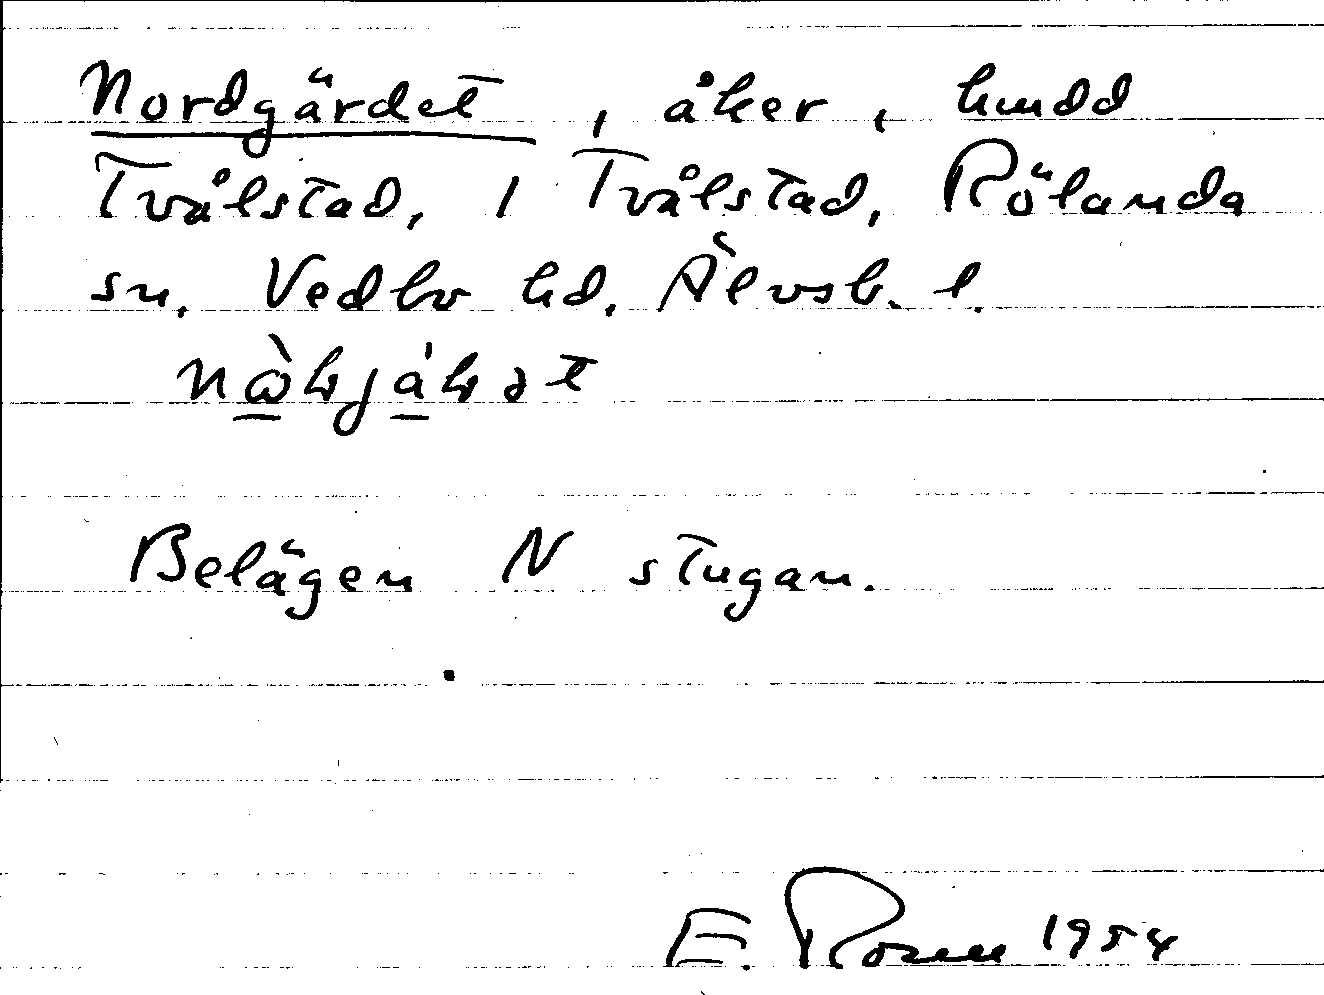 Nordgärdet, åker, hmdd
Tvålstad, 1 Tvålstad, Rölanda
sn. Vedbo hd. Älvsb. l.
Belägen N stugan.
E. Rosell 1954